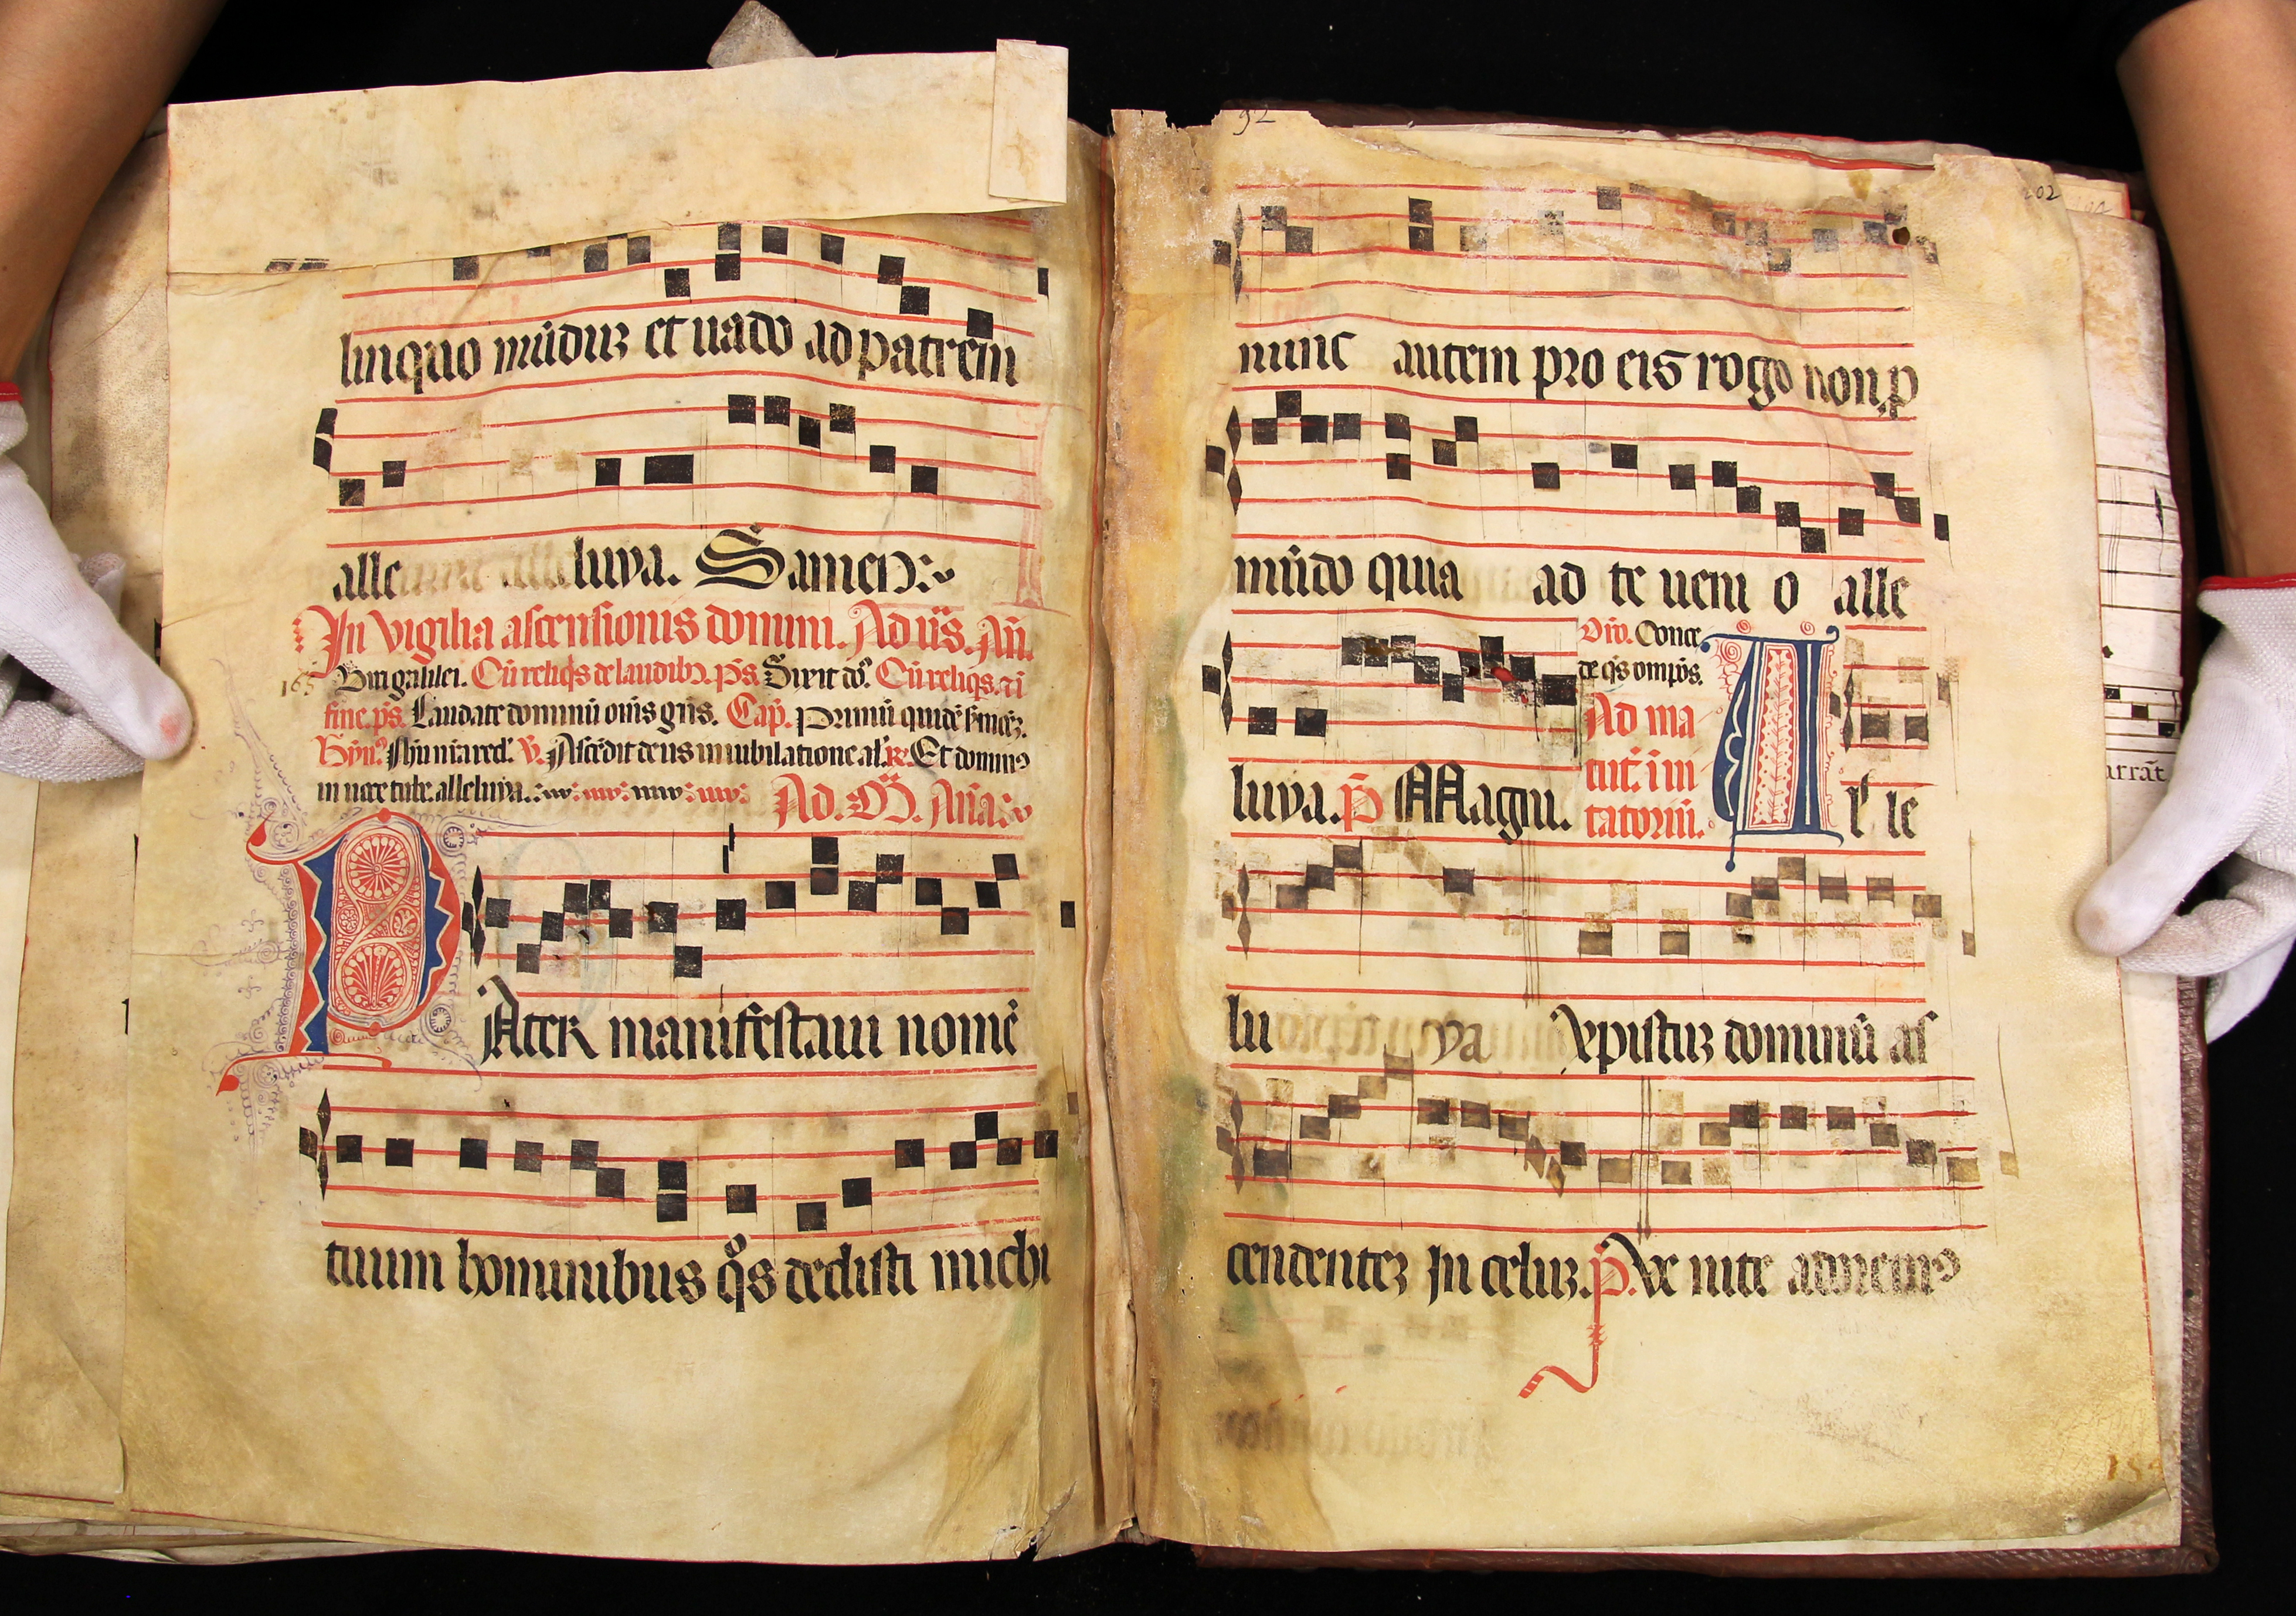 linquo mūduʒ et uado ad patrem
alle luya. S amen:
In vigilia ascensionis domini. Ad ūs. Añ.
165 Viri galilei. Cū reliqs de laudibȝ. ps. Dixit dō. Cū reliqs. ī
fine. ps. Laudate dominū om̄s gn̄s. Cap. Primū quidē
Hȳn. Ihu nr̄a red. V. Ascēdit deus in iubilatione al. R. Et dominus
in uoce tube. alleluya. Ad. M. Aña:
P Ater manifestaui nomē
tuum hominibus qos dedisti michi
92
202
nunc autem pro eis rogo non p
mūdo quia ad te ueni o alle
Orō. Conce
de qs omps.
Ad ma
tut. in
uitatoriū.
luya. ps Magni. A l le
lu ya xpistuʒ dominū as
cendenteʒ In celuʒ. ps. Ve nite adoremus